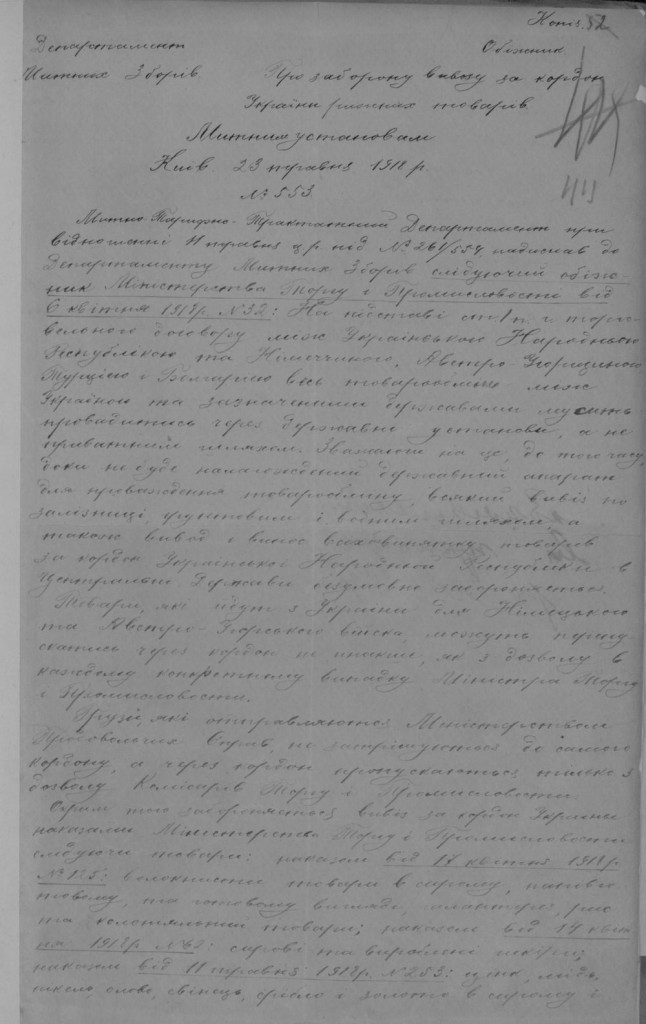 Копія. 52
Департамент
Обіжник.
Митних Зборів.
Про заборону вивозу за кордон
України ріжних товарів.
Митним установам
Київ 23 травня 1918 р.
№ 553.
Митно-Тарифно-Трактатний Департамент при
відношенні 11 травня ц.р. під № 261/554 надіслав до
Департаменту Митних Зборів слідуючий обіж-
ник Міністерства Торгу і Промисловости від
6 квітня 1918р. №32: На підставі ст. 1 п. г. торго-
вельного договору між Українською Народньою
Республікою та Німеччиною, Австро-Угорщиною
Турцією і Болгарією весь товарообмін між
Україною та зазначеними державами мусить
провадитись через державні установи, а не
приватним шляхом. Зважаючи на це, до того часу,
доки не буде налагоджений державний апарат
для провадження товарообміну, всякий вивіз по
залізниці, грунтовим і водним шляхом, а
також вивод і винос всіх без винятку товарів
за кордон Української Народньої Республіки в
Центральні Держави безумовно забороняється.
Товари, які йдуть з України для Німецького
та Австро-Угорського війська, можуть пропу-
скатись через кордон не инакше, як з дозволу в
кождому конкретному випадку Міністра Торгу
і Промисловости.
Грузи, які отправляються Міністерством
Продовольчих Справ, не затрімуються до самого
кордону, а через кордон пропускаються тільки з
дозволу Комісарів Торгу і Промисловости.
Окрім того забороняється вивіз за кордон України
наказами Міністерства Торгу і Промисловости
слідуючи товари: наказом від 17 квітня 1918 р.
№ 125: волокнисті товари в сирому, напівго-
товому, та готовому вигляді, галантерея,
та колоніяльні товари; наказом від 14 квіт-
ня 1918 р. № 62: сирові та вироблені шкури;
наказом від 11 травня 1918 р. № 253: цинк, мідь,
нікель, олово, свинець, срібло і золото в сирому і